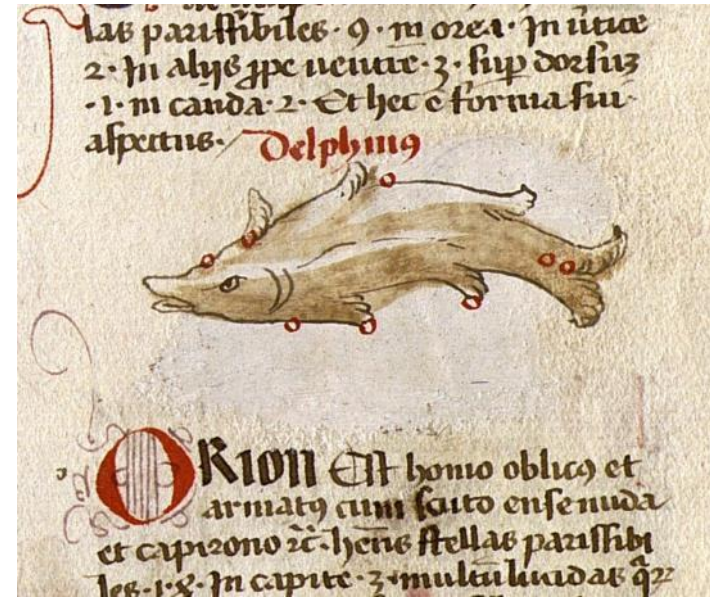 las parissibiles · 9 · in orea · In uētce
2 · In alijs ꝓpe uentrē · 3 · suꝑ dorsuʒ
· 1 · in cauda · 2 · Et hec ē forma sui
aspectus · Delphinꝰ
ORION Est homo obliqꝰ et
armatꝰ cum scuto ense nuda
et capirono ⁊c̄ · hēns stellas parissibi
les · 1·8 · In capite · 3 · multū liuidas